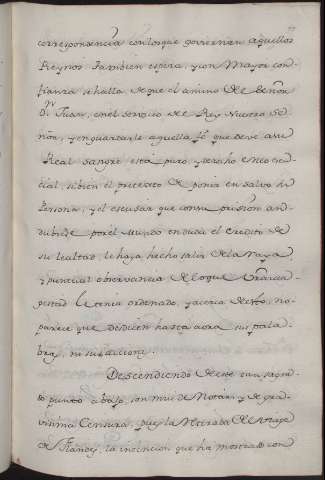 correspondencia con los que goviernan aquellos
Reynos. Tambien espera, y con mayor con-
fianza se halla de que el animo de Señor
Dn. Juan, en el servicio de Rey Nuestro Se-
ñor, y en guardarle aquella fé que deve a su
Real sangre, esta puro, y derecho
si bien el pretexto de poner en salvo su
Persona, y el escusar que con su prision an-
dubiese por el Mundo en duda el Credito de
su lealtad, le haya hecho salir de la raya,
y puntual observancia de lo que Vra. Ma-
gestad le tenia ordenado, y acerca desto, no
parece que desdicen hasta aora sus pala-
bras, ni sus acciones.
Descendiendo de ese tan
punto abajo, son muy de Notar, y de gra-
visima Censura, pues la Retirada de Viaje
de Flandes, la intencion que ha mostrado con